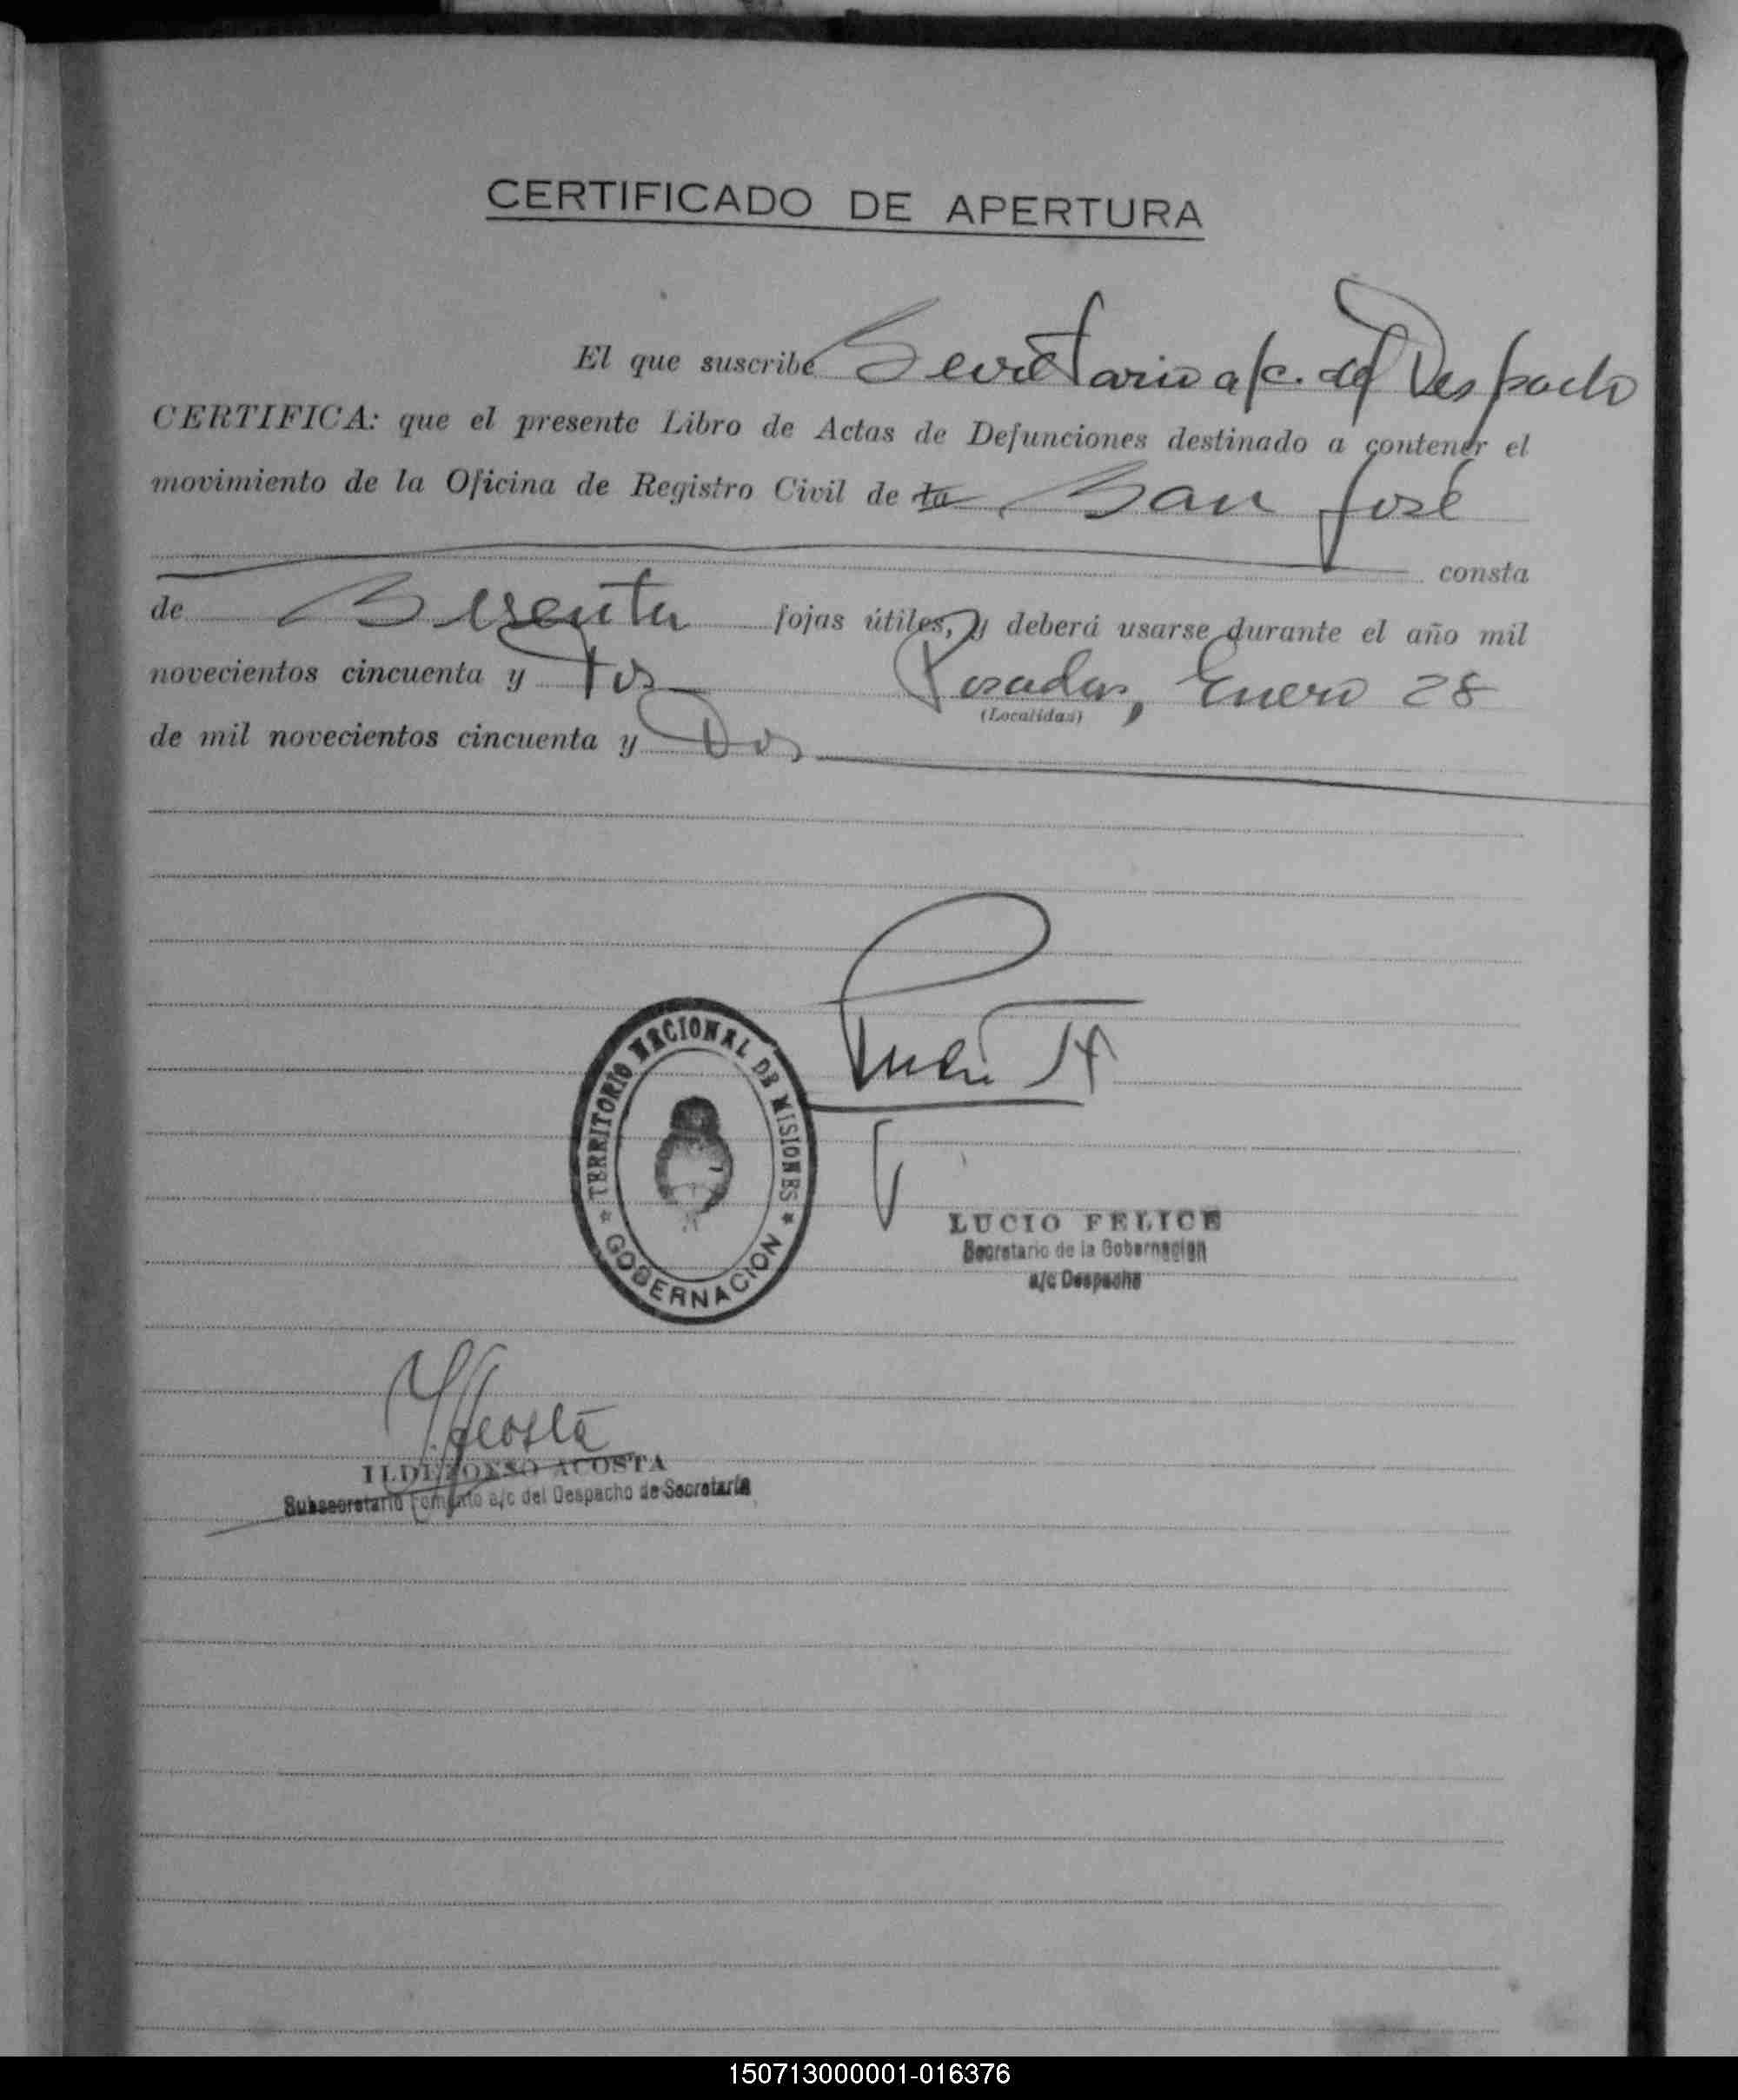 CERTIFICADO DE APERTURA
El que suscribe Secretario a/c. del Despacho
CERTIFICA: que el presente Libro de Actas de Defunciones destinado a contener el
movimiento de la Oficina de Registro Civil de la San José
consta
de fojas útiles, y deberá usarse durante el año mil
novecientos cincuenta y Dos Posadas, Enero 28
(Localidad)
de mil novecientos cincuenta y Dos
TERRITORIO NACIONAL DE MISIONES
GOBERNACION
LUCIO FELICE
Secretario de la Gobernación
a/c Despacho
Acosta
ILDEFONSO ACOSTA
Subsecretario Fomento a/c del Despacho de Secretaría
150713000001-016376